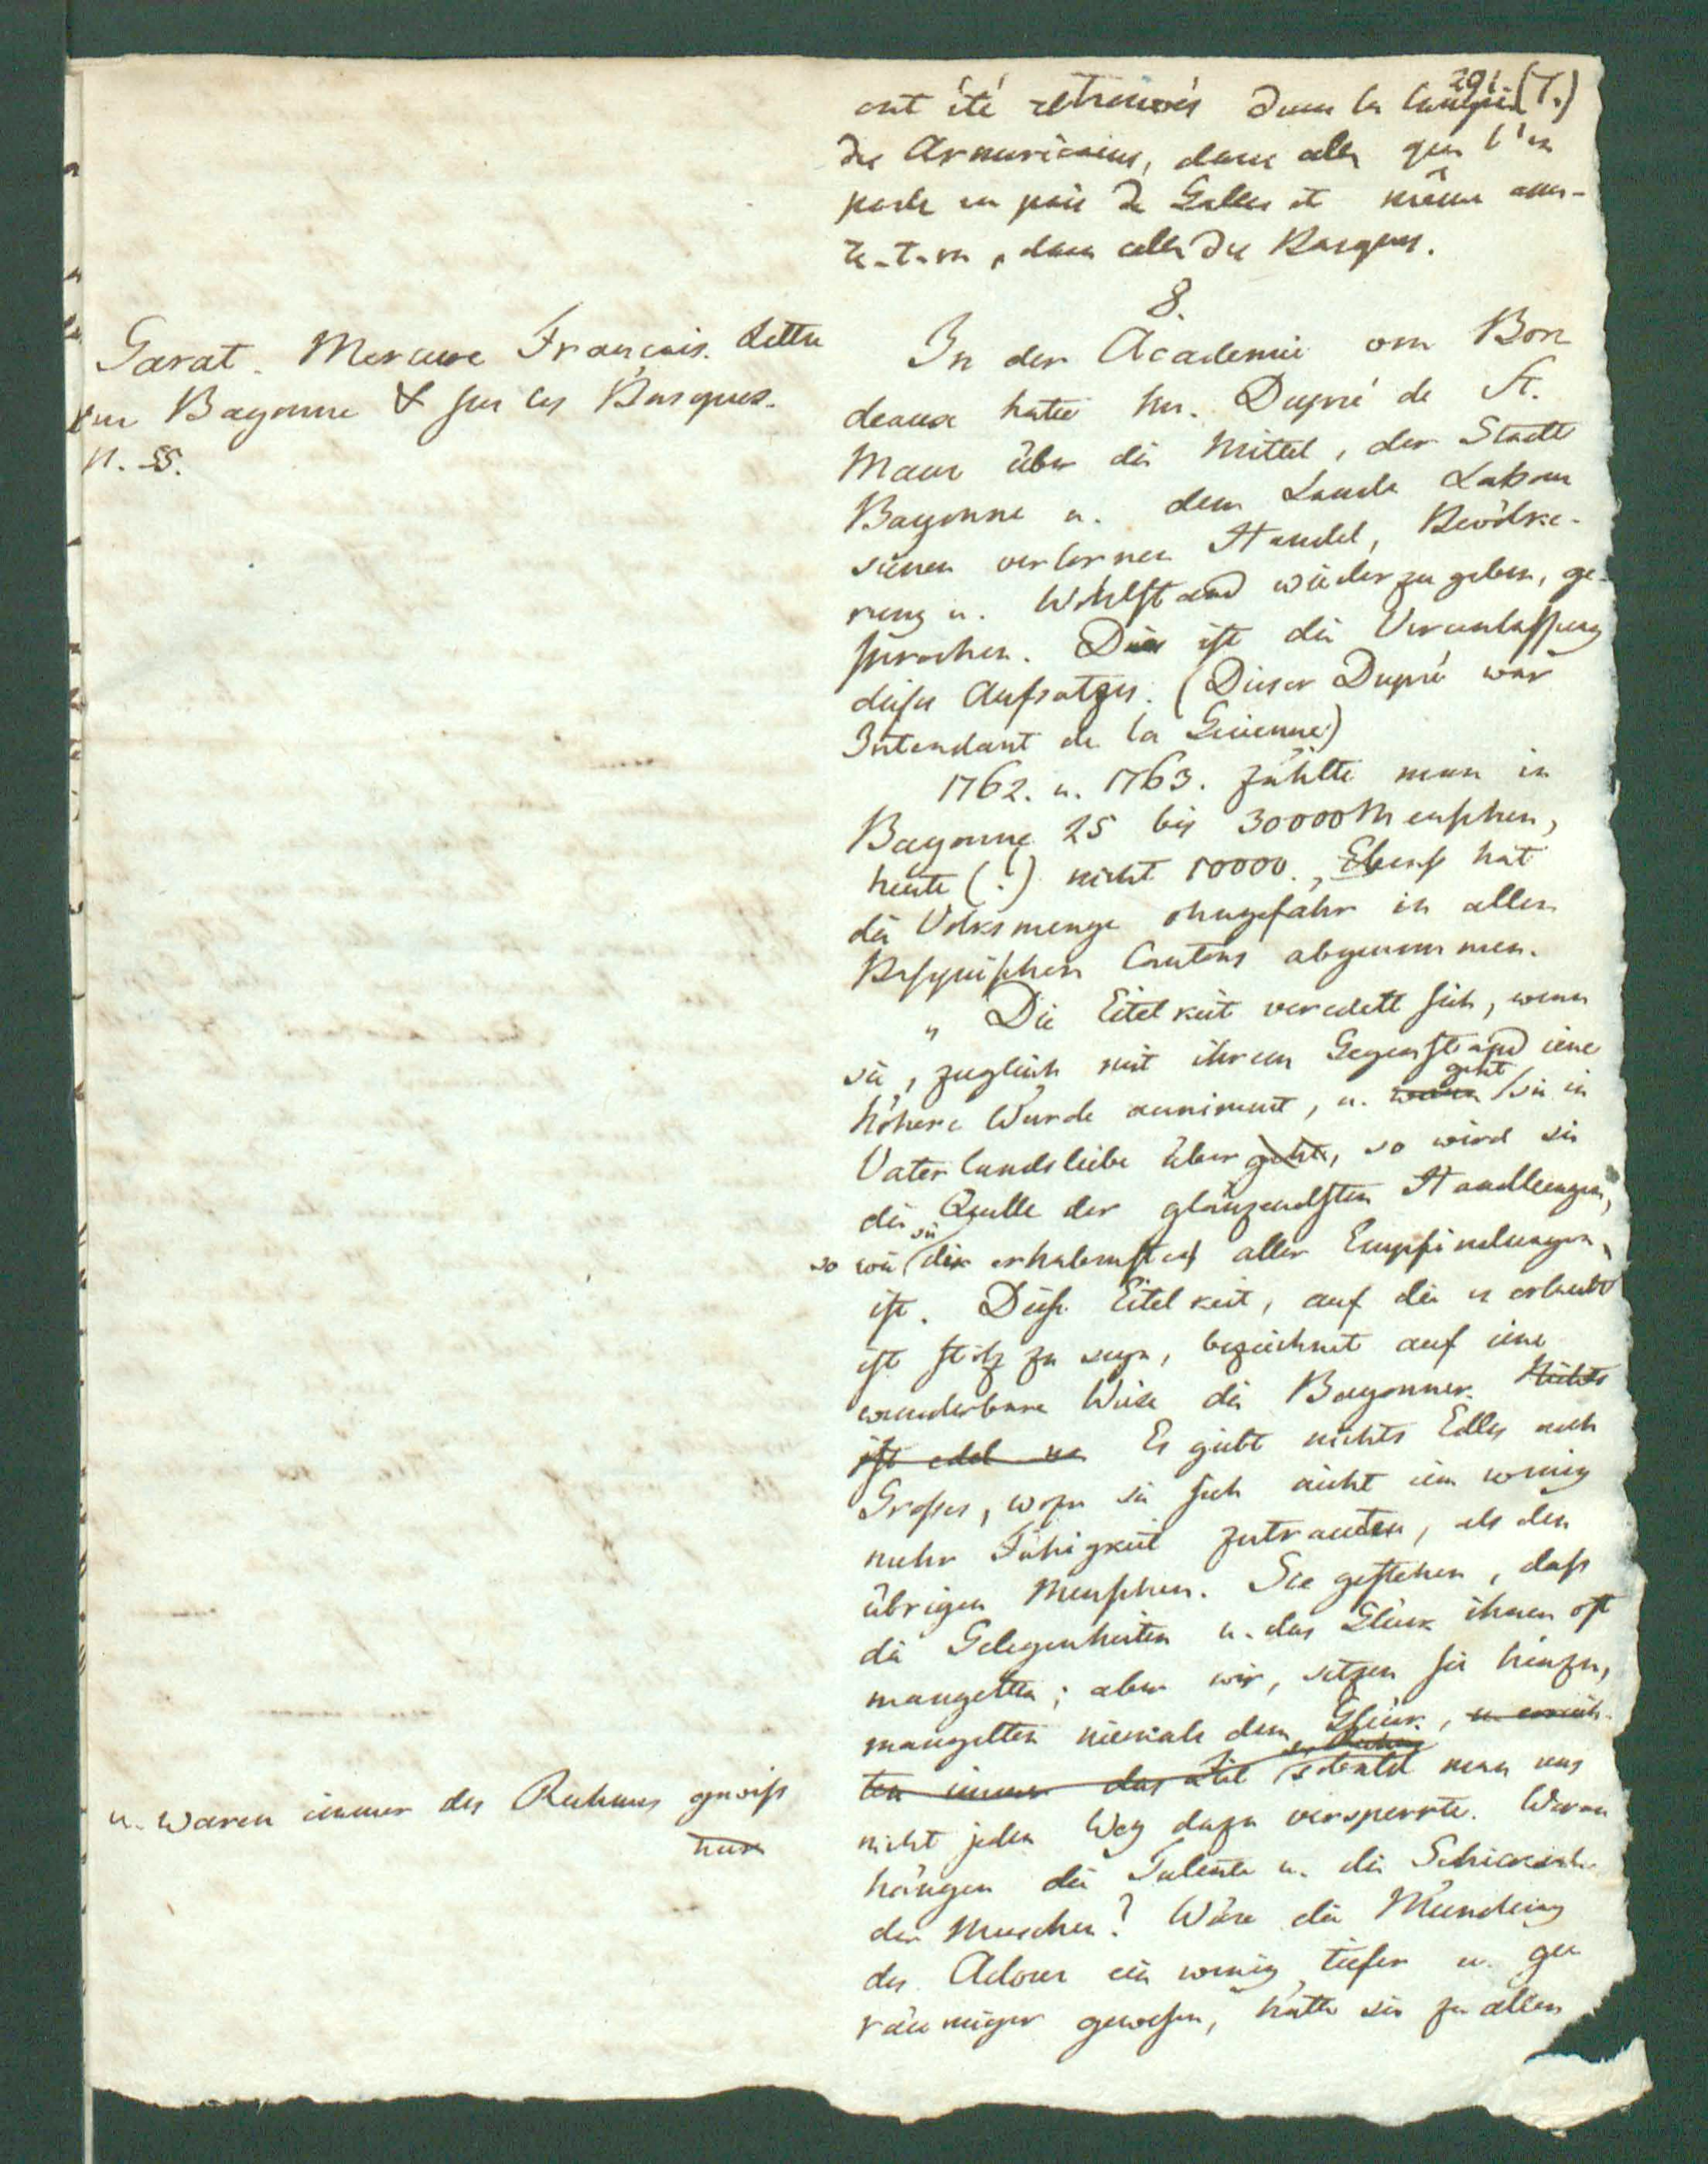 291. (7.)
ont été retrouvés dans la langue
des Armoricains, dans celle que l'on
parle en païs de Galles et même assu-
re-t-on, dans celle des Basques.
8.
Garat. Mercure Français. Lettre
sur Bayonne & sur les Basques.
n. 55.
In der Academie von Bor-
deaux hatte Hr. Dupré de St.
Maur über die Mittel, der Stadt
Bayonne u. dem Lande Labour
seinen verlornen Handel, Bevölke-
rung u. Wohlstand wiederzugeben, ge-
sprochen. Dies ist die Veranlassung
dieses Aufsatzes. (Dieser Dupré war
Intendant de la Guienne)
1762. u. 1763. zählte man in
Bayonne 25 bis 30000 Menschen,
heute (?) nicht 10000., Ebenso hat
die Volksmenge ohngefähr in allen
Basquischen Cantons abgenommen.
„ Die Eitelkeit veredelt sich, wenn
sie, zugleich mit ihrem Gegenstand eine
höhere Würde annimmt, u. geht sie in
Vaterlandsliebe über geht, so wird sie
die Quelle der glänzendsten Handlungen,
so wie sie die erhabenste aller Empfindungen
ist. Diese Eitelkeit, auf die es erlaubt
ist stolz zu seyn, bezeichnet auf eine
wunderbare Weise die Bayonner. Nichts
ist edel Es giebt nichts Edles noch
Grosses, wozu sie sich nicht ein wenig
mehr Fähigkeit zutrauten, als den
übrigen Menschen. Sie gestehen, dass
die Gelegenheiten u. das Glück ihnen oft
mangelten; aber wir, setzen sie hinzu,
mangelten niemals dem Glück, u. erreich-
ten immer das Ziel sobald man uns
u. waren immer des Ruhmes gewiss
nicht jeden Weg dazu versperrte. Woran
hängen die Talente u. die Schicksale
der Menschen? Wäre die Mündung
des Adour ein wenig tiefer u. ge-
räumiger gewesen, hätte sie zu allen